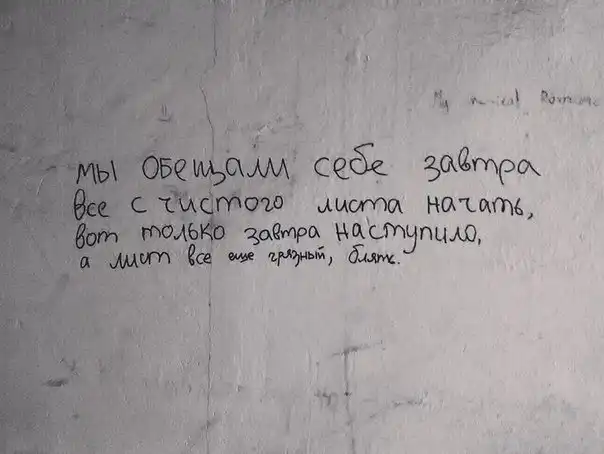 My Romance
мы обещали себе завтра
все с чистого листа начать,
вот только завтра наступило,
а лист все еще грязный, блять.